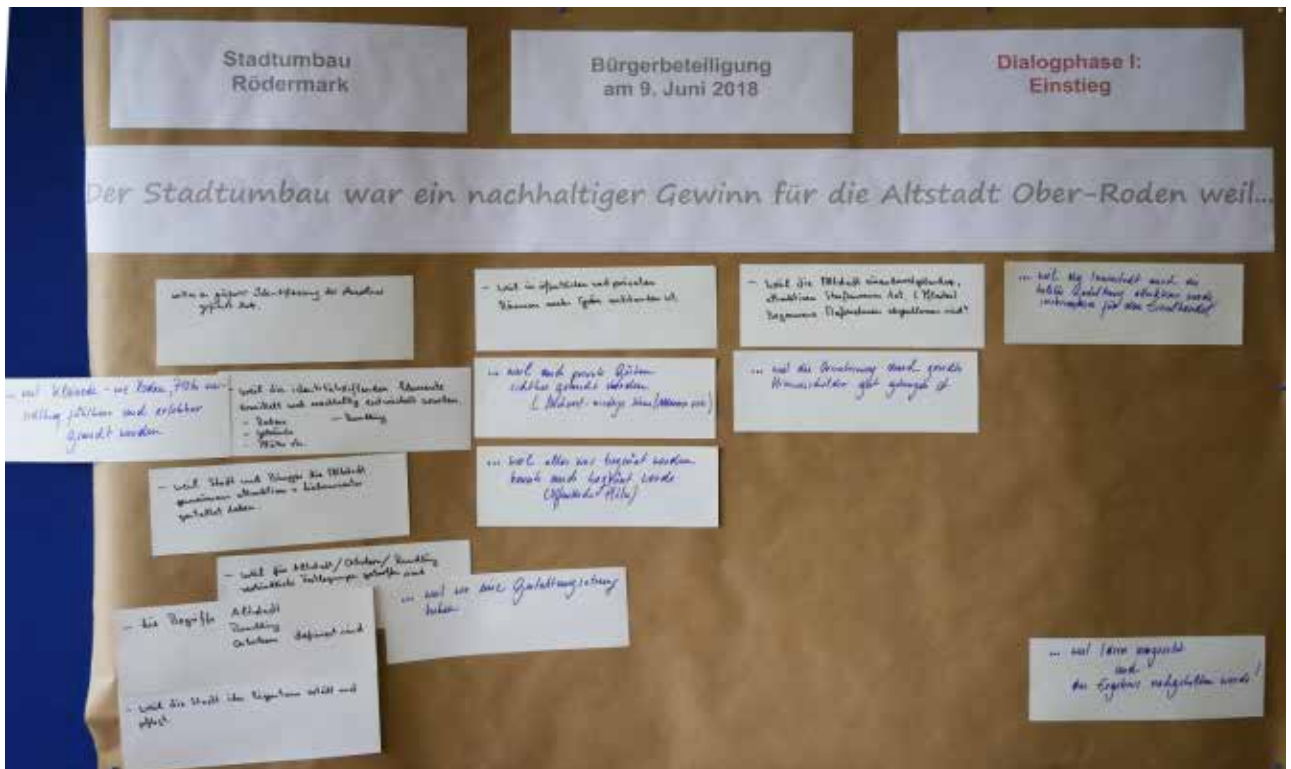 Stadtumbau
Rödermark
Bürgerbeteiligung
am 9. Juni 2018
Dialogphase I:
Einstieg
Der Stadtumbau war ein nachhaltiger Gewinn für die Altstadt Ober-Roden weil...
Identifizierung der
geführt hat.
- weil in öffentlichen und privaten
Räumen mehr Grün entstanden ist.
- weil die Altstadt
attraktiven hat.
Maßnahmen abgeschlossen sind
... weil die Innenstadt durch die
attraktiver wurde
für den Einzelhandel
- weil Kleinode - wie Rodau,
fühlbar und erlebbar
gemacht wurden
- weil die identitätsstiftenden Elemente
ermittelt und nachhaltig entwickelt wurden.
- Rodau - Rundling
- Gebäude
- Plätze
... weil auch private Gärten
sichtbar gemacht wurden
... weil die durch
Hinweisschilder gut gelungen ist
- weil Stadt und Bürger die Altstadt
gemeinsam attraktiv + liebenswerter
gestaltet haben.
... weil alles was begrünt werden
konnte auch begrünt wurde
- weil für Altstadt/Ortskern/Rundling
verbindliche Festlegungen getroffen sind
... weil wir eine Gestaltungssatzung
haben
- die Begriffe Altstadt
Rundling
Ortskern definiert sind
- weil die Stadt ihr Eigentum erhält und
pflegt.
... weil Ideen umgesetzt
und
das Ergebnis nachgehalten wurde!